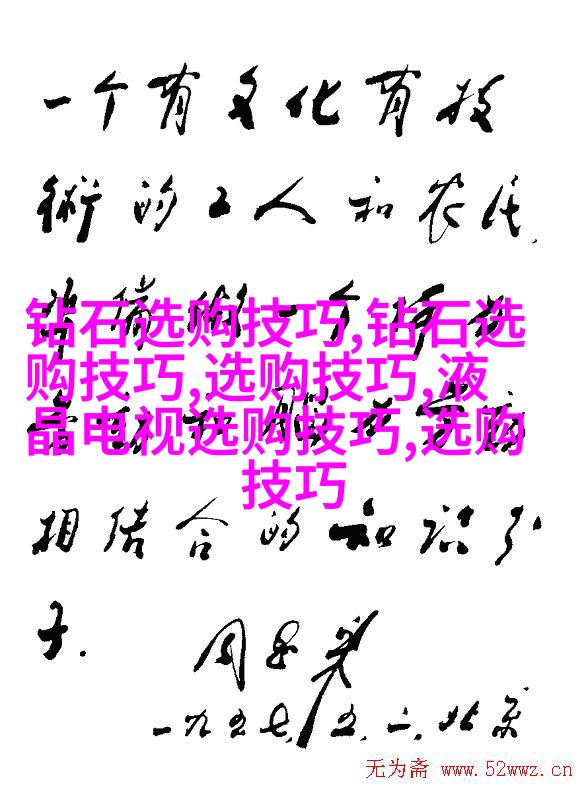 一个有文化有技
術的工人和农民,
钻石选购技巧,钻石选
购技巧,选购技巧,液
晶电视选购技巧,选购
技巧
相结合的知识分
子.
周恩来
一九五七,五.二,北京
无为斋 www.52wwz.cn